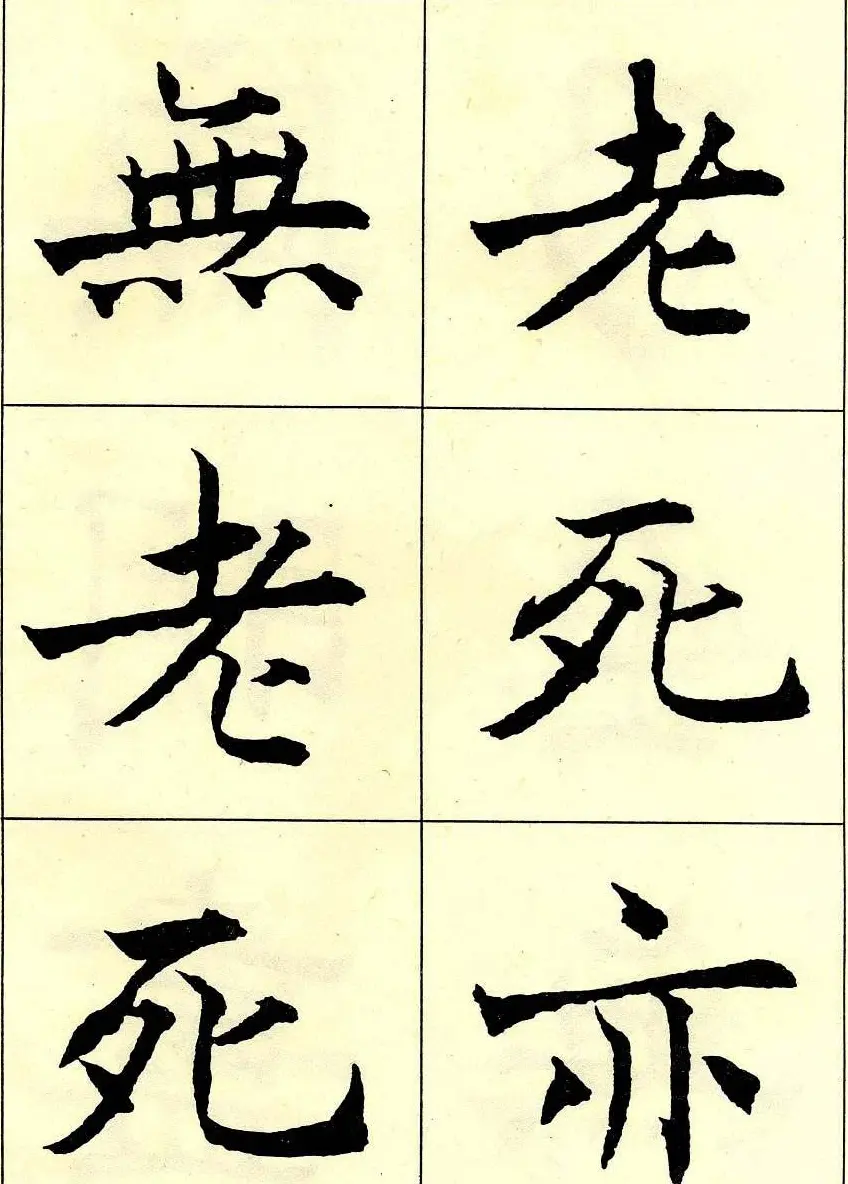 老死亦
無老死